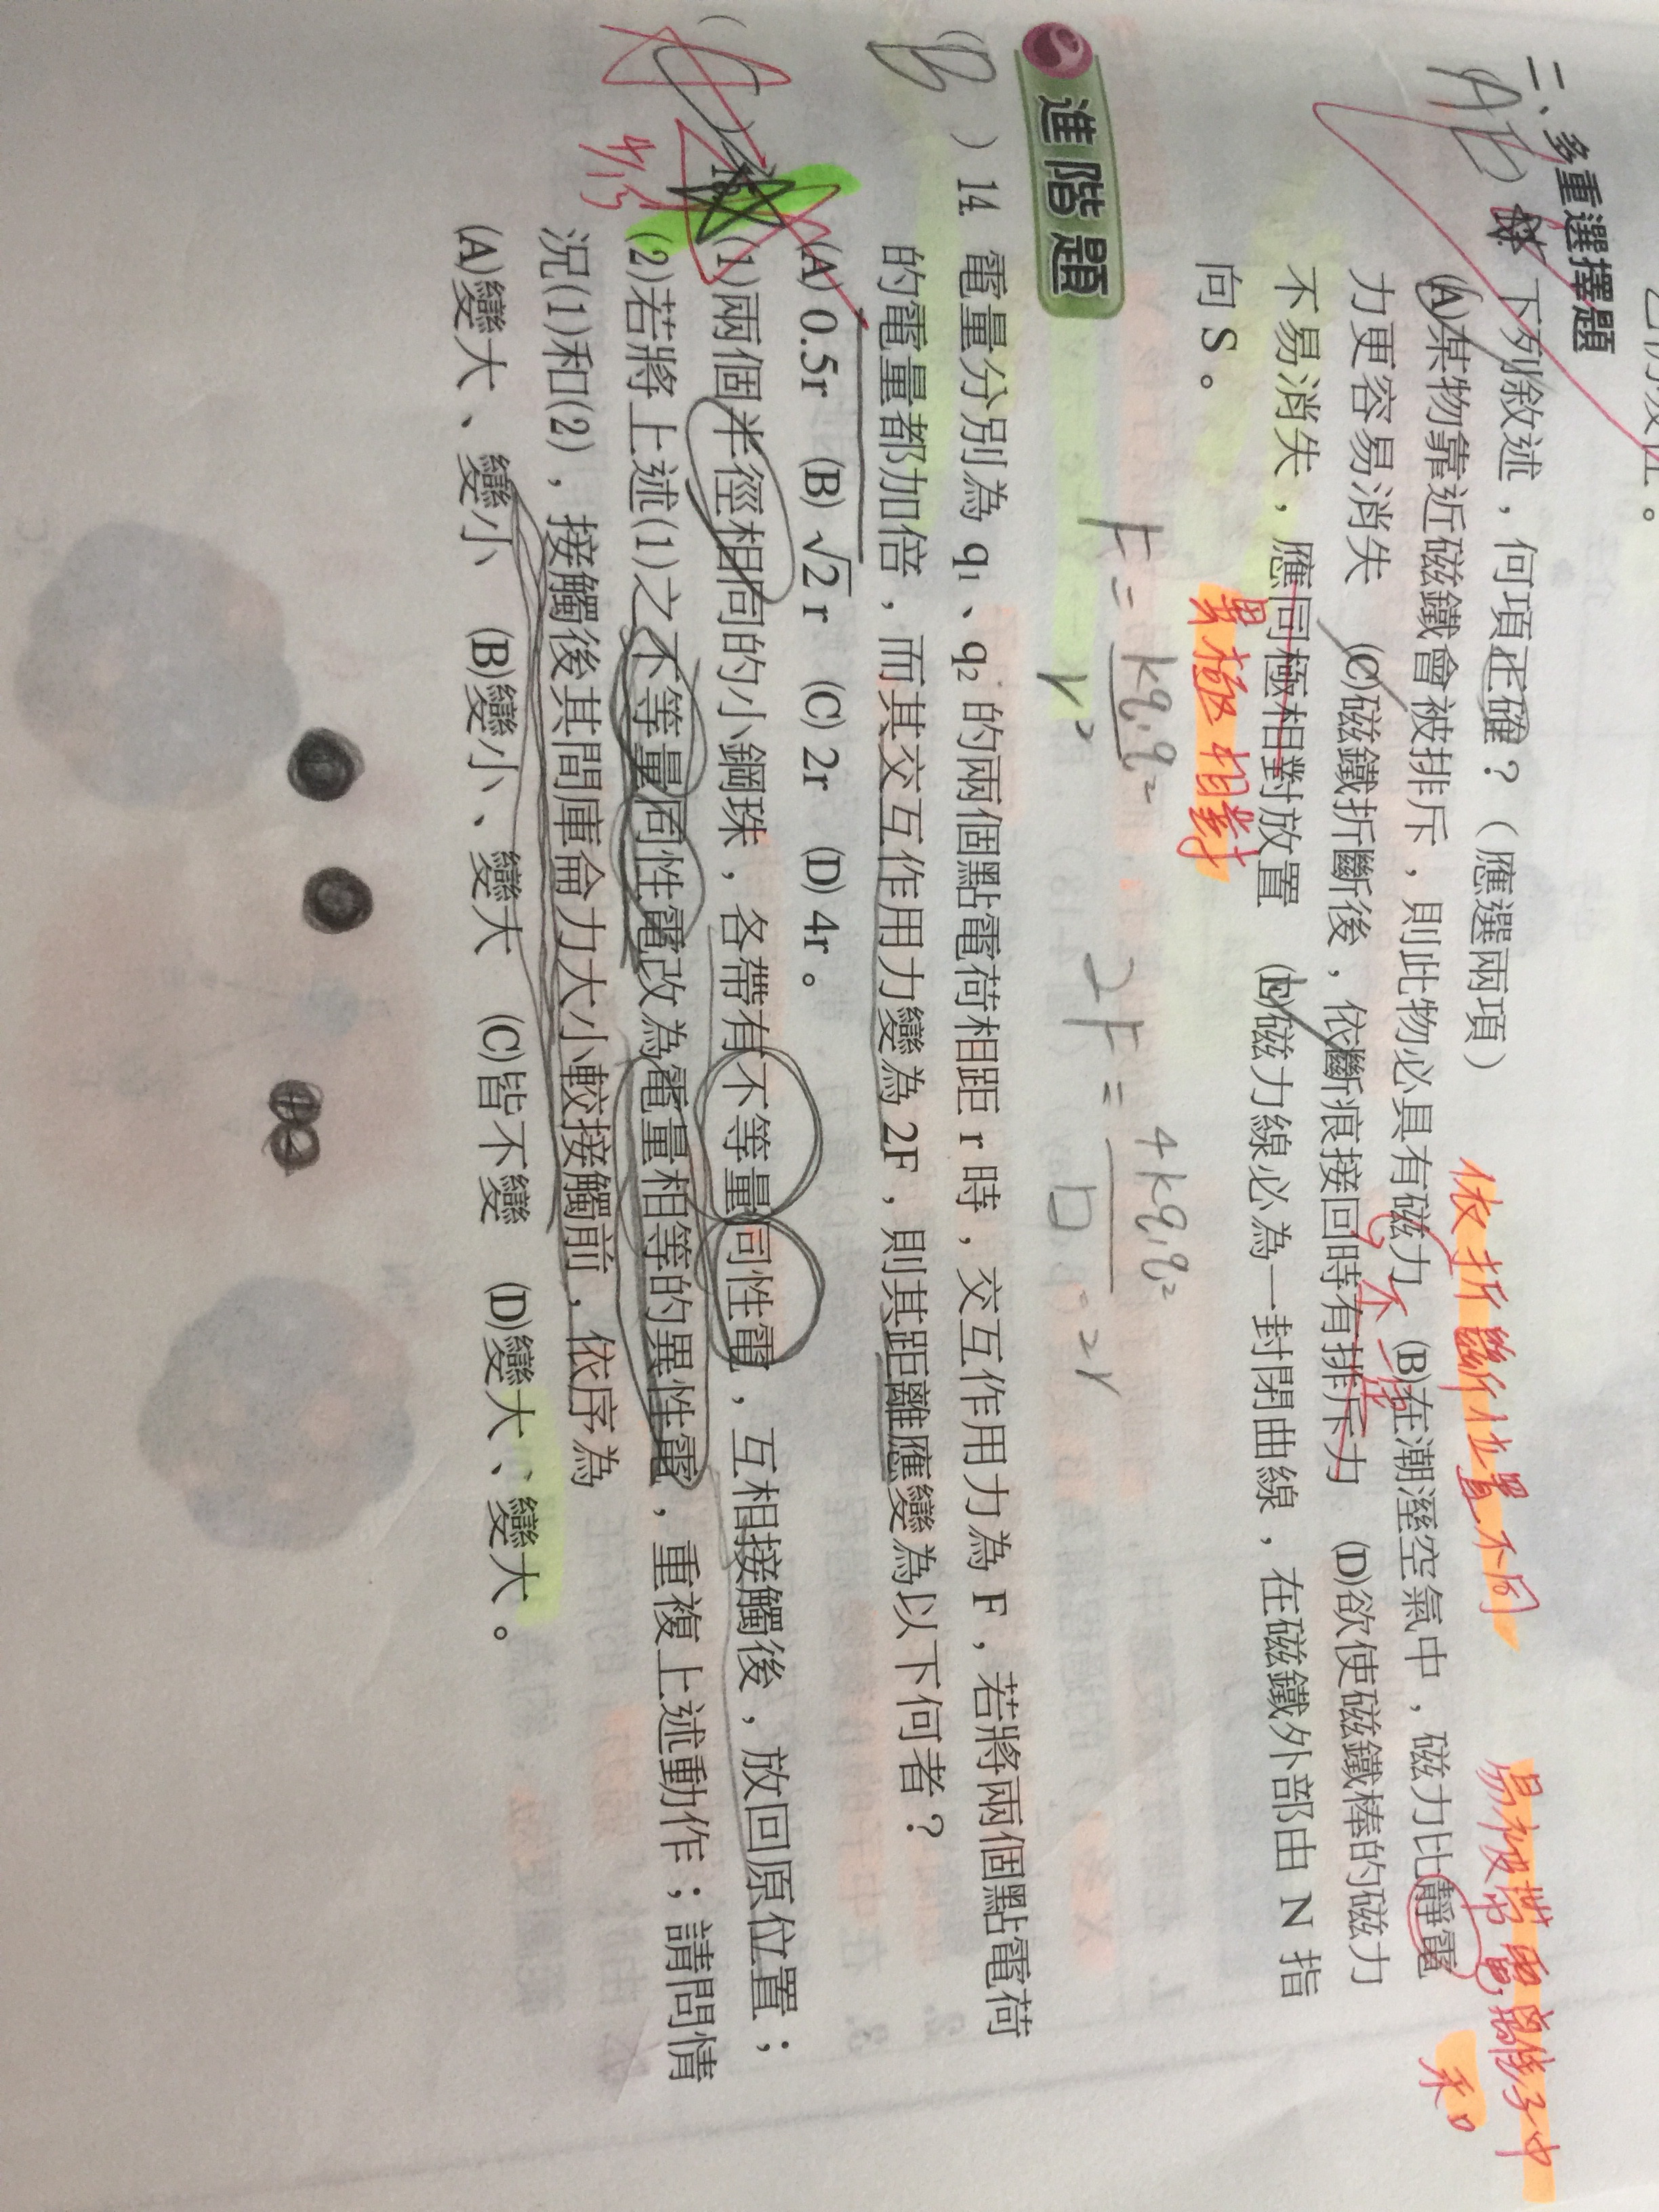 二、多重選擇題
AE
下列敘述，何項正確？（應選兩項）
依折斷位置不同
易被帶電離子中和
(A)某物靠近磁鐵會被排斥，則此物必具有磁力 (B)在潮溼空氣中，磁力比靜電
力更容易消失 (C)磁鐵折斷後，依斷痕接回時有排斥力 (D)欲使磁鐵棒的磁力
不一定
不易消失，應同極相對放置 (E)磁力線必為一封閉曲線，在磁鐵外部由 N 指
異極相對
向 S。
進階題
F = kq₁q₂ / r²
2F = 4kq₁q₂
(B) 14. 電量分別為 q₁、q₂ 的兩個點電荷相距 r 時，交互作用力為 F，若將兩個點電荷
的電量都加倍，而其交互作用力變為 2F，則其距離應變為以下何者？
(A) 0.5r (B) √2 r (C) 2r (D) 4r。
4/13
(1)兩個半徑相同的小鋼珠，各帶有不等量同性電，互相接觸後，放回原位置；
(2)若將上述(1)之不等量同性電改為電量相等的異性電，重複上述動作；請問情
況(1)和(2)，接觸後其間庫侖力大小較接觸前，依序為
(A)變大、變小 (B)變小、變大 (C)皆不變 (D)變大、變大。